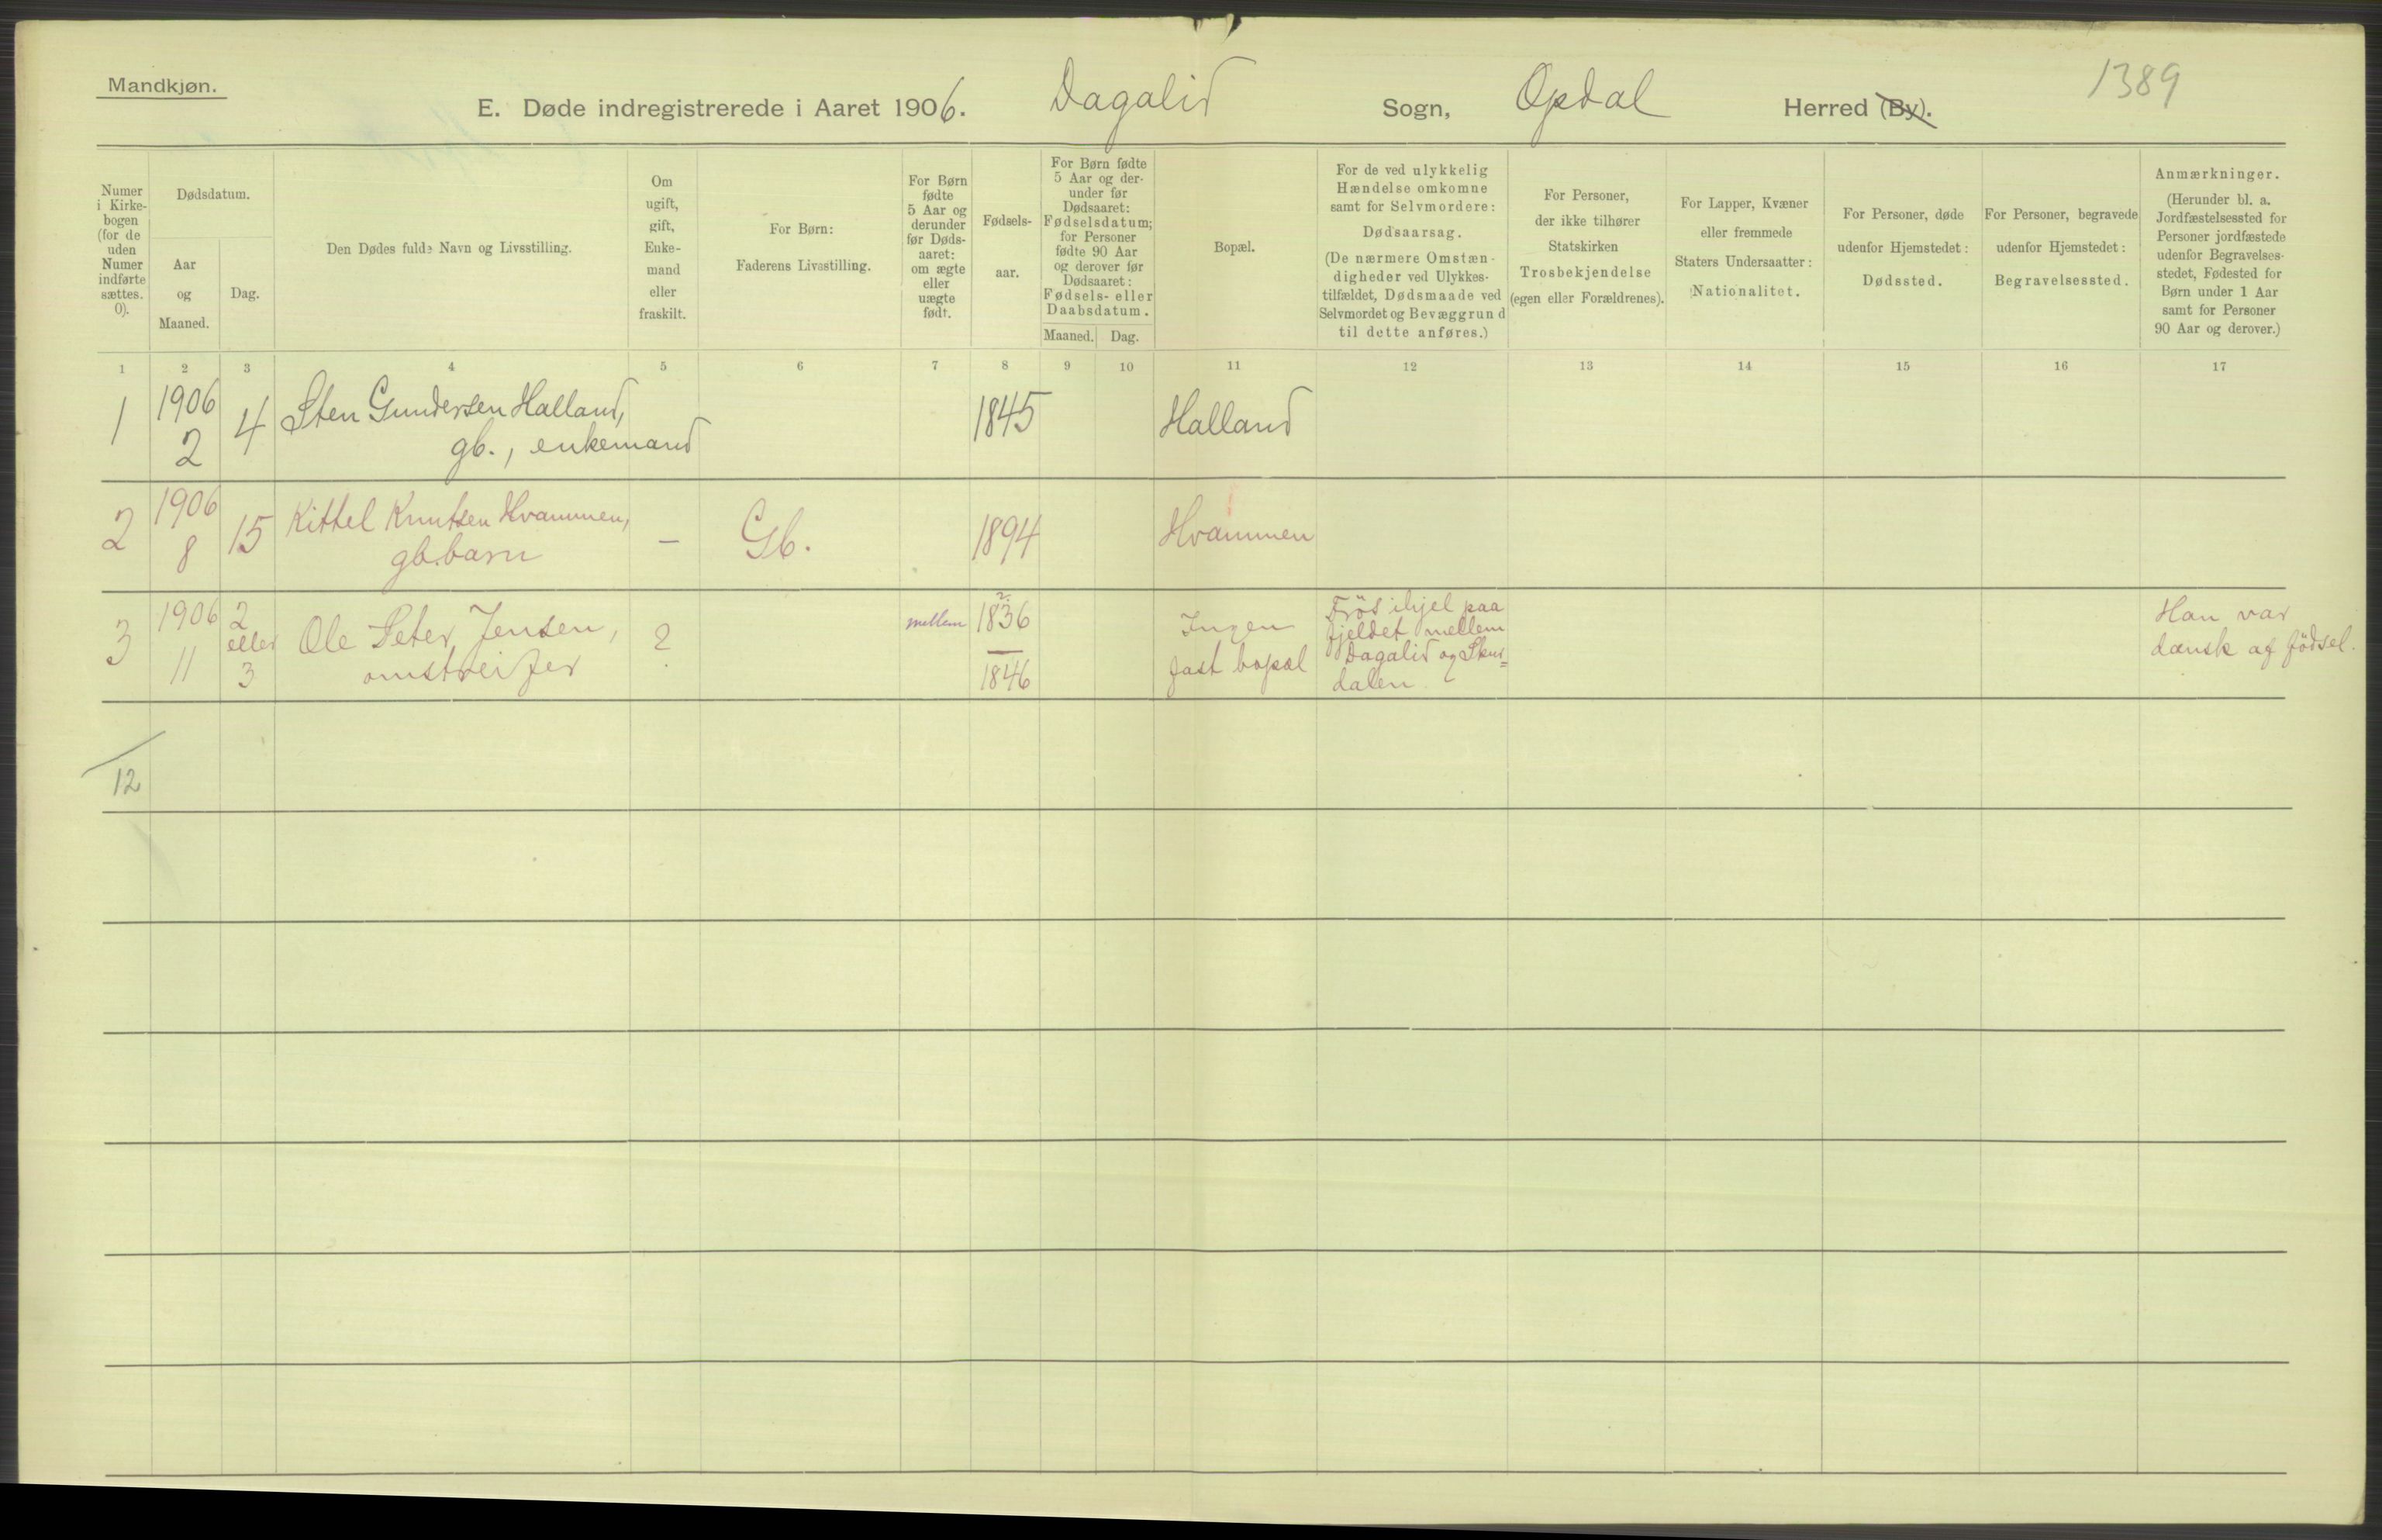 Mandkjøn.
E. Døde indregistrerede i Aaret 1906. Dagalid Sogn, Opdal Herred (By).
1389
Numer
i Kirke-
bogen
(for de
uden
Numer
indførte
sættes.
0).
Dødsdatum.
Aar
og
Maaned.
Dag.
Den Dødes fulde Navn og Livsstilling.
Om
ugift,
gift,
Enke-
mand
eller
fraskilt.
For Børn:
Faderens Livsstilling.
For Børn
fødte
5 Aar og
derunder
før Døds-
aaret:
om ægte
eller
uægte
født.
Fødsels-
aar.
For Børn fødte
5 Aar og der-
under før
Dødsaaret:
Fødselsdatum;
for Personer
fødte 90 Aar
og derover før
Dødsaaret:
Fødsels- eller
Daabsdatum.
Maaned.
Dag.
Bopæl.
For de ved ulykkelig
Hændelse omkomne
samt for Selvmordere:
Dødsaarsag.
(De nærmere Omstæn-
digheder ved Ulykkes-
tilfældet, Dødsmaade ved
Selvmordet og Bevæggrund
til dette anføres.)
For Personer,
der ikke tilhører
Statskirken
Trosbekjendelse
(egen eller Forældrenes).
For Lapper, Kvæner
eller fremmede
Staters Undersaatter:
Nationalitet.
For Personer, døde
udenfor Hjemstedet:
Dødssted.
For Personer, begravede
udenfor Hjemstedet:
Begravelsessted.
Anmærkninger.
(Herunder bl. a.
Jordfæstelsessted for
Personer jordfæstede
udenfor Begravelses-
stedet, Fødested for
Børn under 1 Aar
samt for Personer
90 Aar og derover.)
1 2 3 4 5 6 7 8 9 10 11 12 13 14 15 16 17
1
1906
2
4
Sten Gundersen Halland,
gb., enkemand
1845
Halland
2
1906
8
15
Kittel Knutsen Hvammen,
gb.barn
–
Gb.
1894
Hvammen
3
1906
11
2
eller
3
Ole Peter Jensen,
omstreifer
?
mellem
1836
1846
Ingen
fast bopæl
Frös ihjel paa
fjeldet mellem
Dagalid og Skur=
dalen
Han var
dansk af födsel.
12